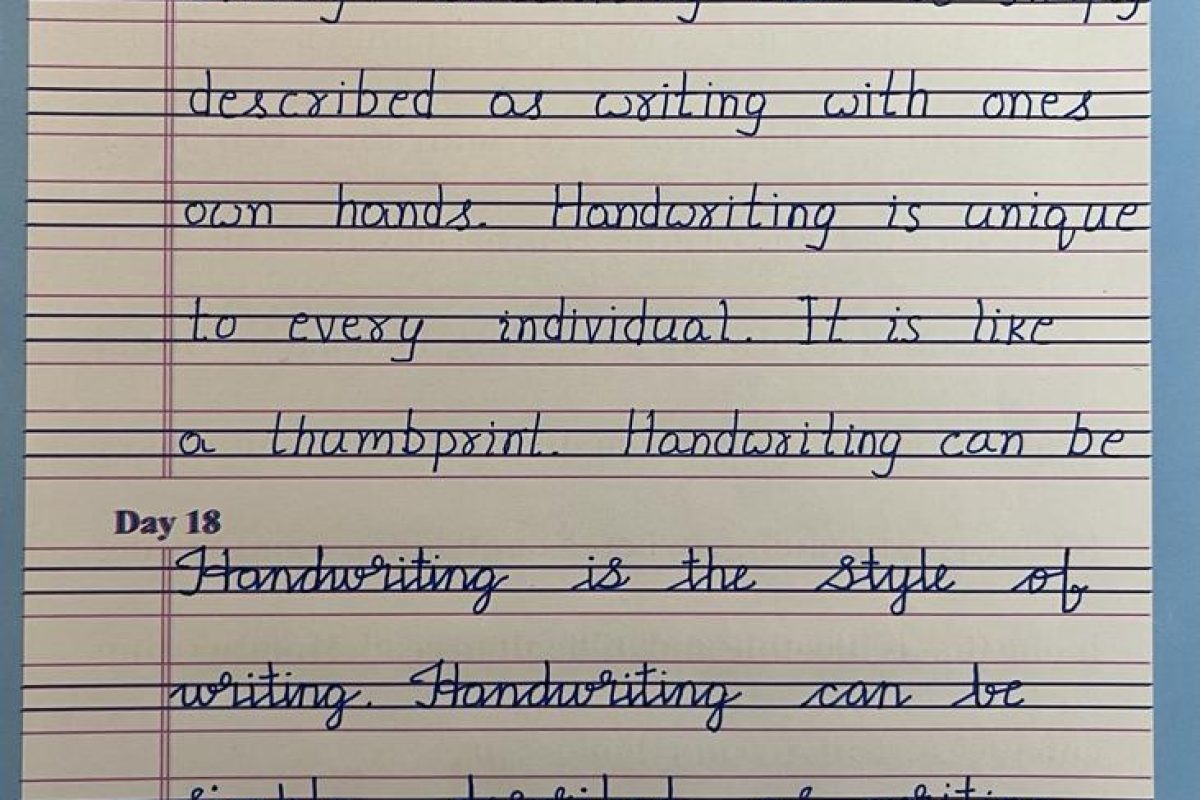 described as writing with ones
own hands. Handwriting is unique
to every individual. It is like
a thumbprint. Handwriting can be
Day 18
Handwriting is the style of
writing. Handwriting can be